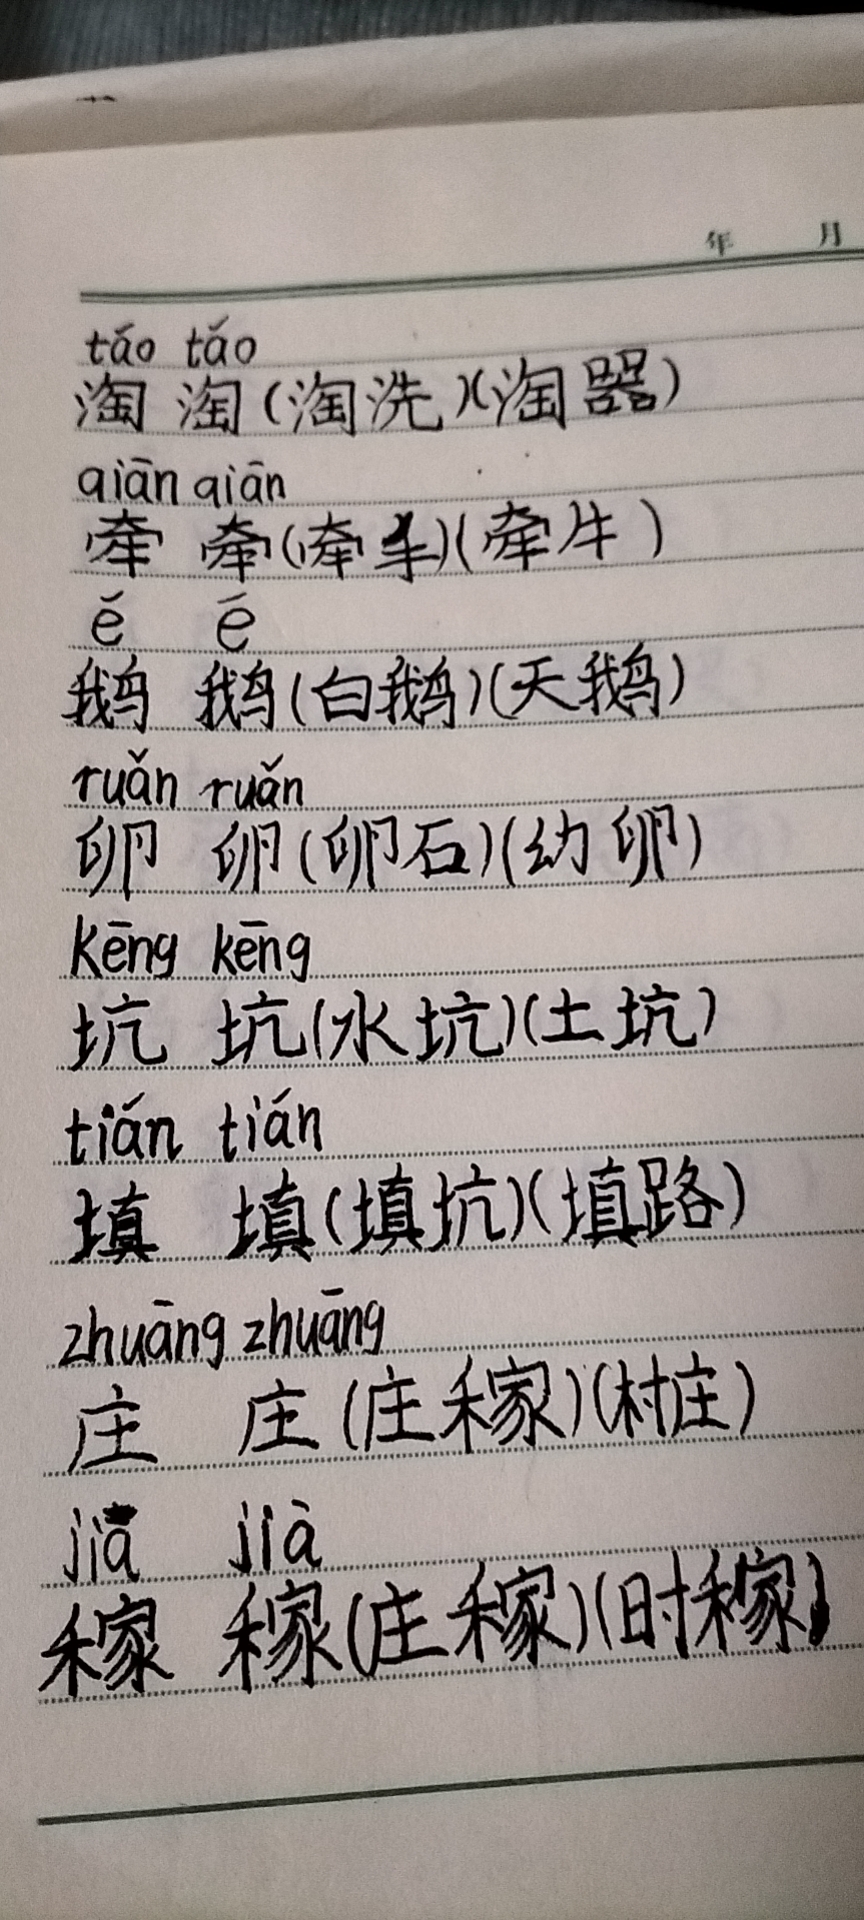 年 月
táo táo
淘 淘(淘洗)(淘器)
qiān qiān
牵 牵(牵羊)(牵牛)
ě ē
鹅 鹅(白鹅)(天鹅)
ruǎn ruǎn
卵 卵(卵石)(幼卵)
kēng kēng
坑 坑(水坑)(土坑)
tián tián
填 填(填坑)(填路)
zhuāng zhuāng
庄 庄(庄稼)(村庄)
jià jià
稼 稼(庄稼)(时稼)